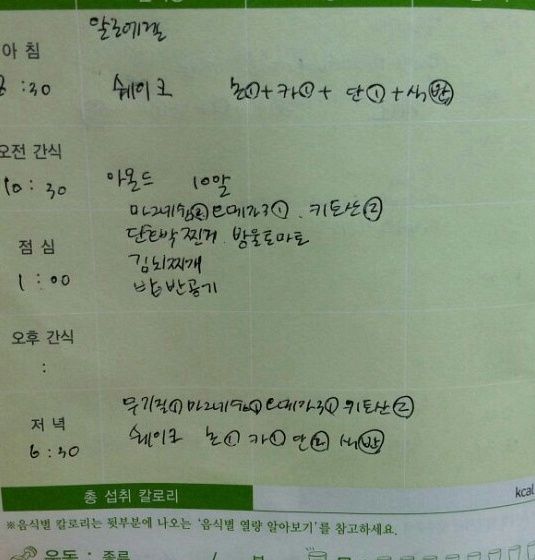 알로에겔
아 침
:30 쉐이크 논①+카①+ 단①+식㉫
오전 간식
10:30 아몬드 10알
마그네슘② 오메가3①. 키토산②
단호박 찐거. 방울토마토
점 심
김치찌개
1:00 밥 반공기
오후 간식
:
무기질① 마그네슘① 오메가3① 키토산②
저 녁
6:30 쉐이크 논① 카① 단② 식(반)
총 섭취 칼로리 kcal
※음식별 칼로리는 뒷부분에 나오는 '음식별 열량 알아보기'를 참고하세요.
운동 : 종류 / 분